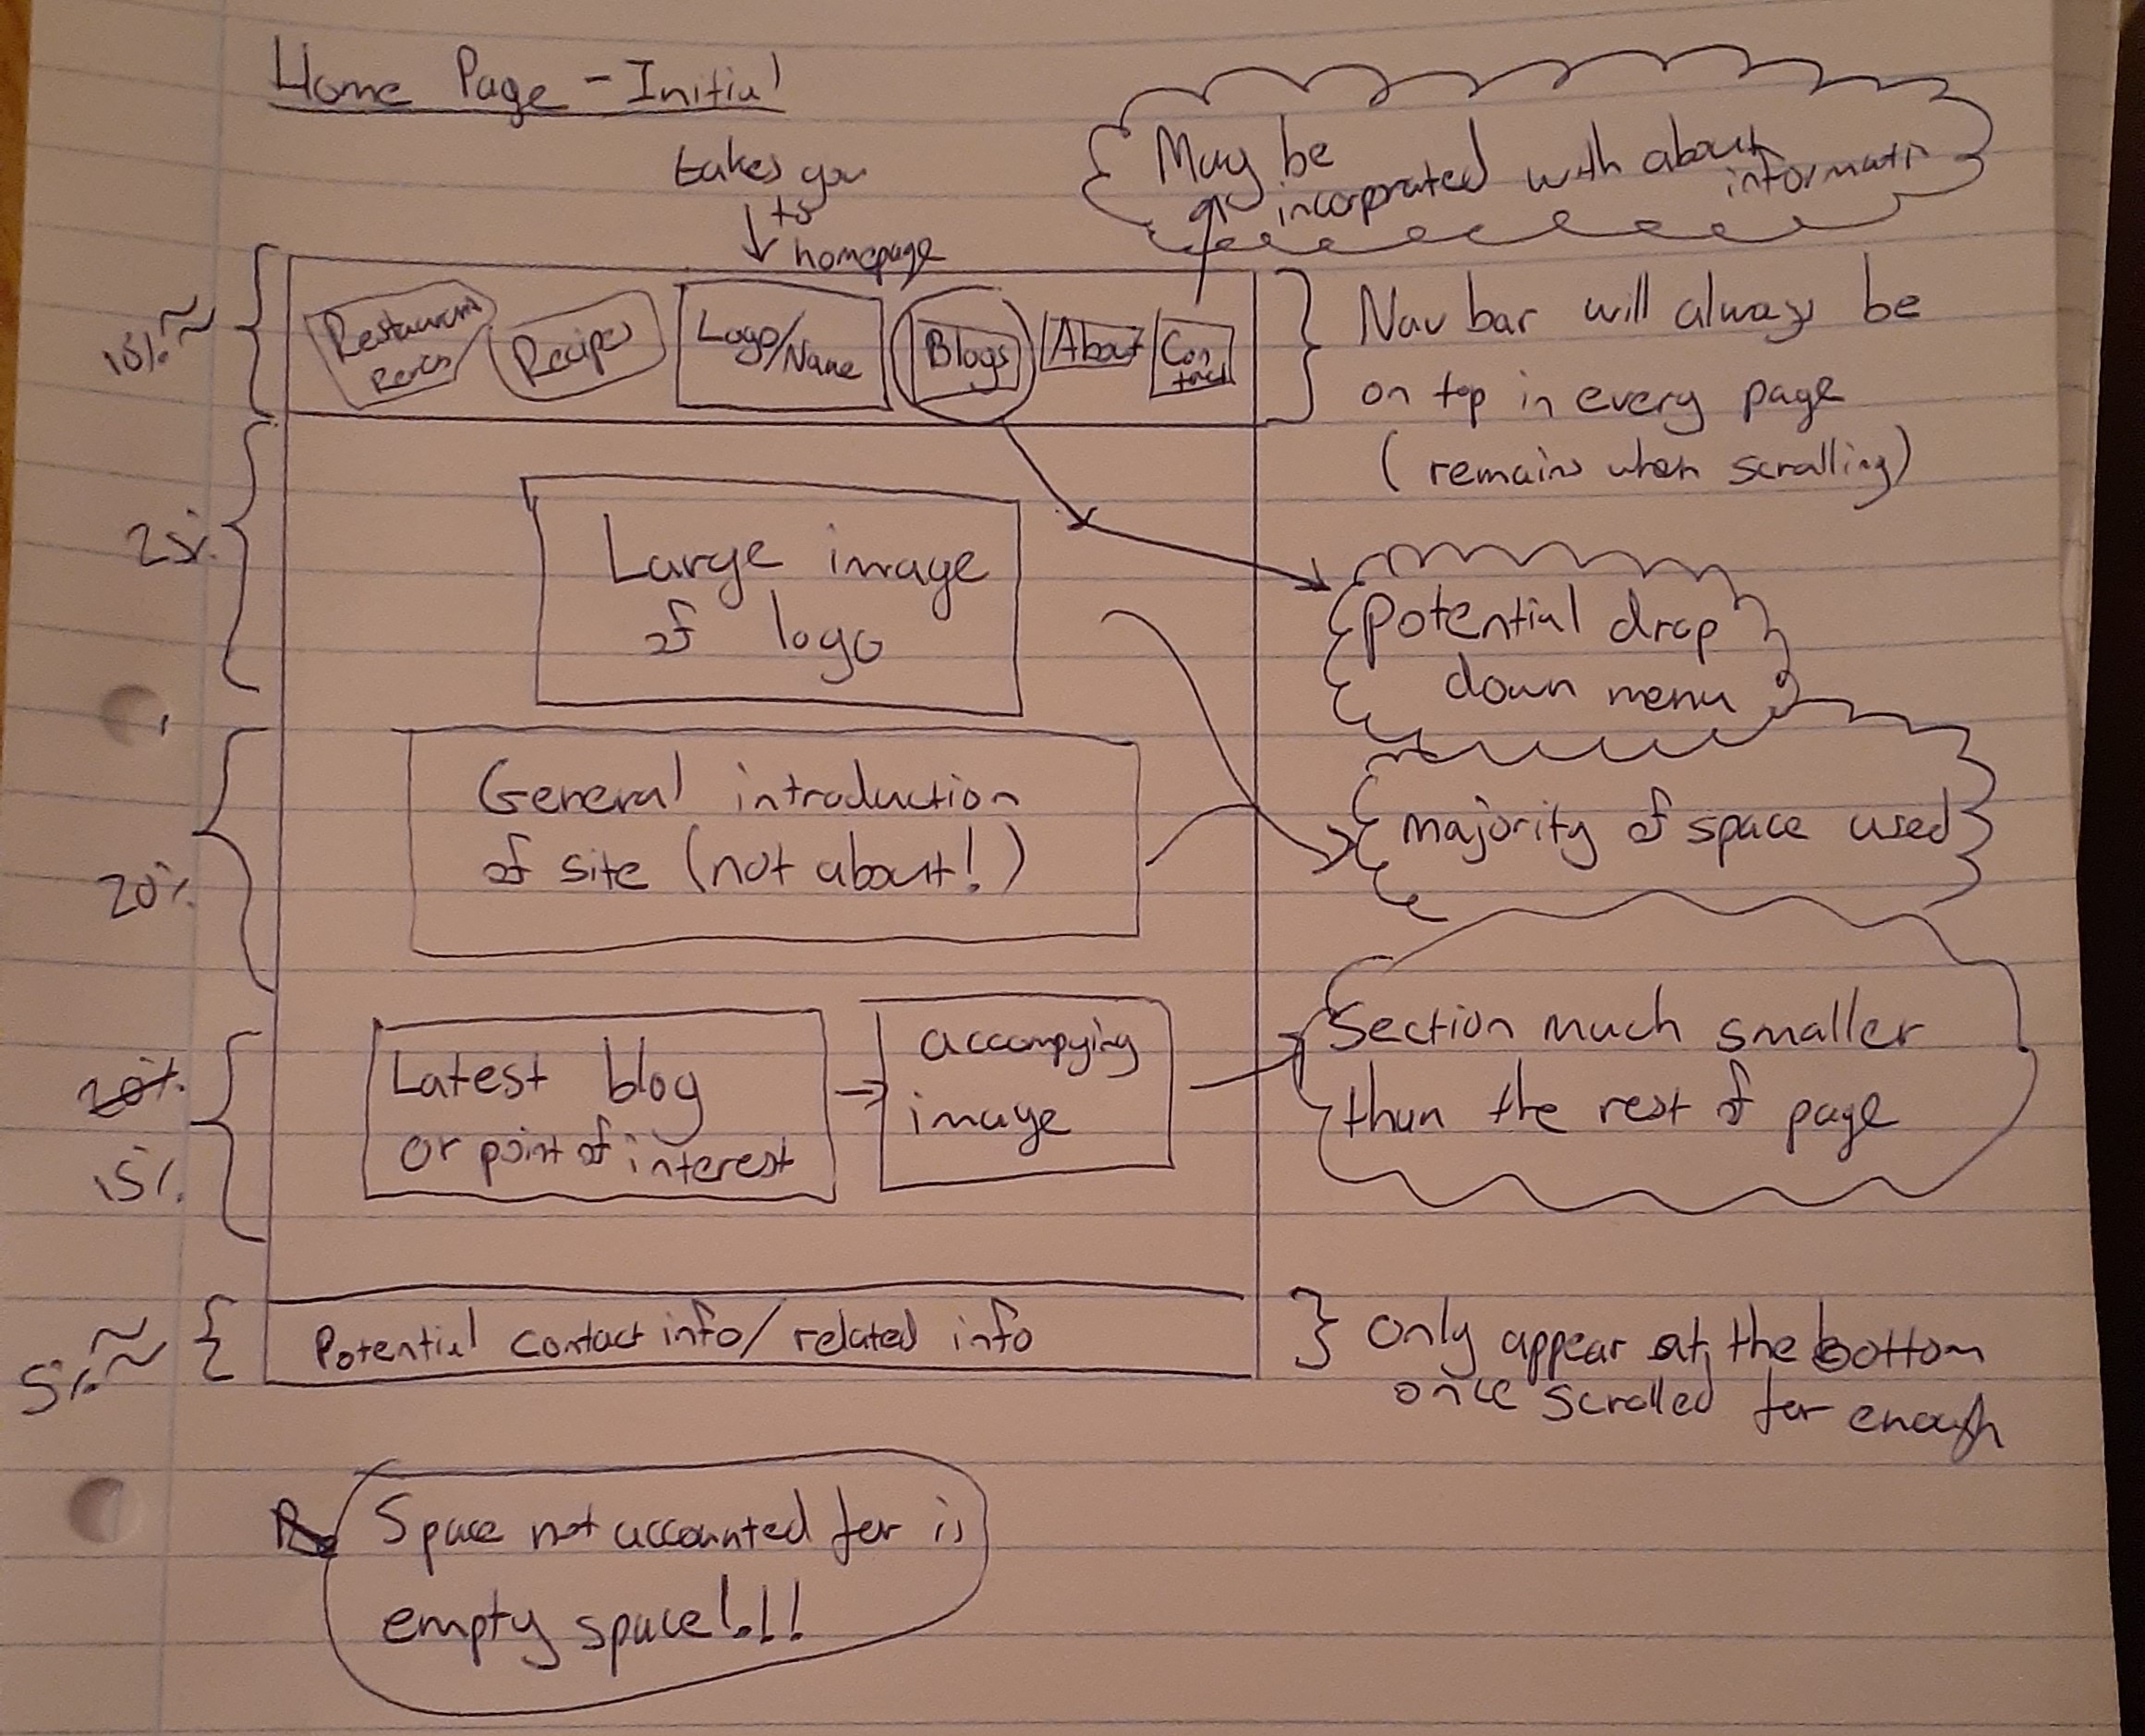 Home Page - Initial
takes you
to
homepage
May be
incorporated with about
informati
15%~
Restaurant
Recipes
Logo/Name
Blogs
About
Con
tact
Nav bar will always be
on top in every page
(remains when scrolling)
25%
Large image
of logo
Potential drop
down menu
20%
General introduction
of site (not about!)
majority of space used
20%
15%
Latest blog
or point of interest
accompying
image
Section much smaller
than the rest of page
5%~
Potential contact info/related info
Only appear at the bottom
once scrolled far enough
Space not accounted for is
empty space!!!